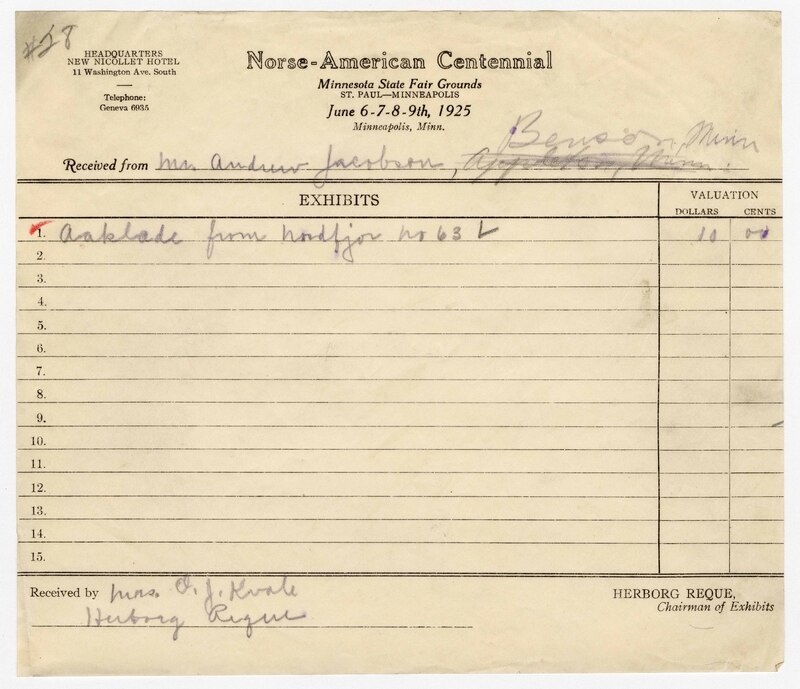 #28
HEADQUARTERS
NEW NICOLLET HOTEL
11 Washington Ave. South
Telephone:
Geneva 6935
Norse-American Centennial
Minnesota State Fair Grounds
ST. PAUL—MINNEAPOLIS
June 6-7-8-9th, 1925
Minneapolis, Minn.
Benson, Minn
Received from Mrs Andrew Jacobson, Appleton, Minn.
EXHIBITS
VALUATION
DOLLARS CENTS
1. Aaklade from Nordfjor no 63 10 00
2.
3.
4.
5.
6.
7.
8.
9.
10.
11.
12.
13.
14.
15.
Received by Mrs. O. J. Kvale
Herborg Reque
HERBORG REQUE,
Chairman of Exhibits